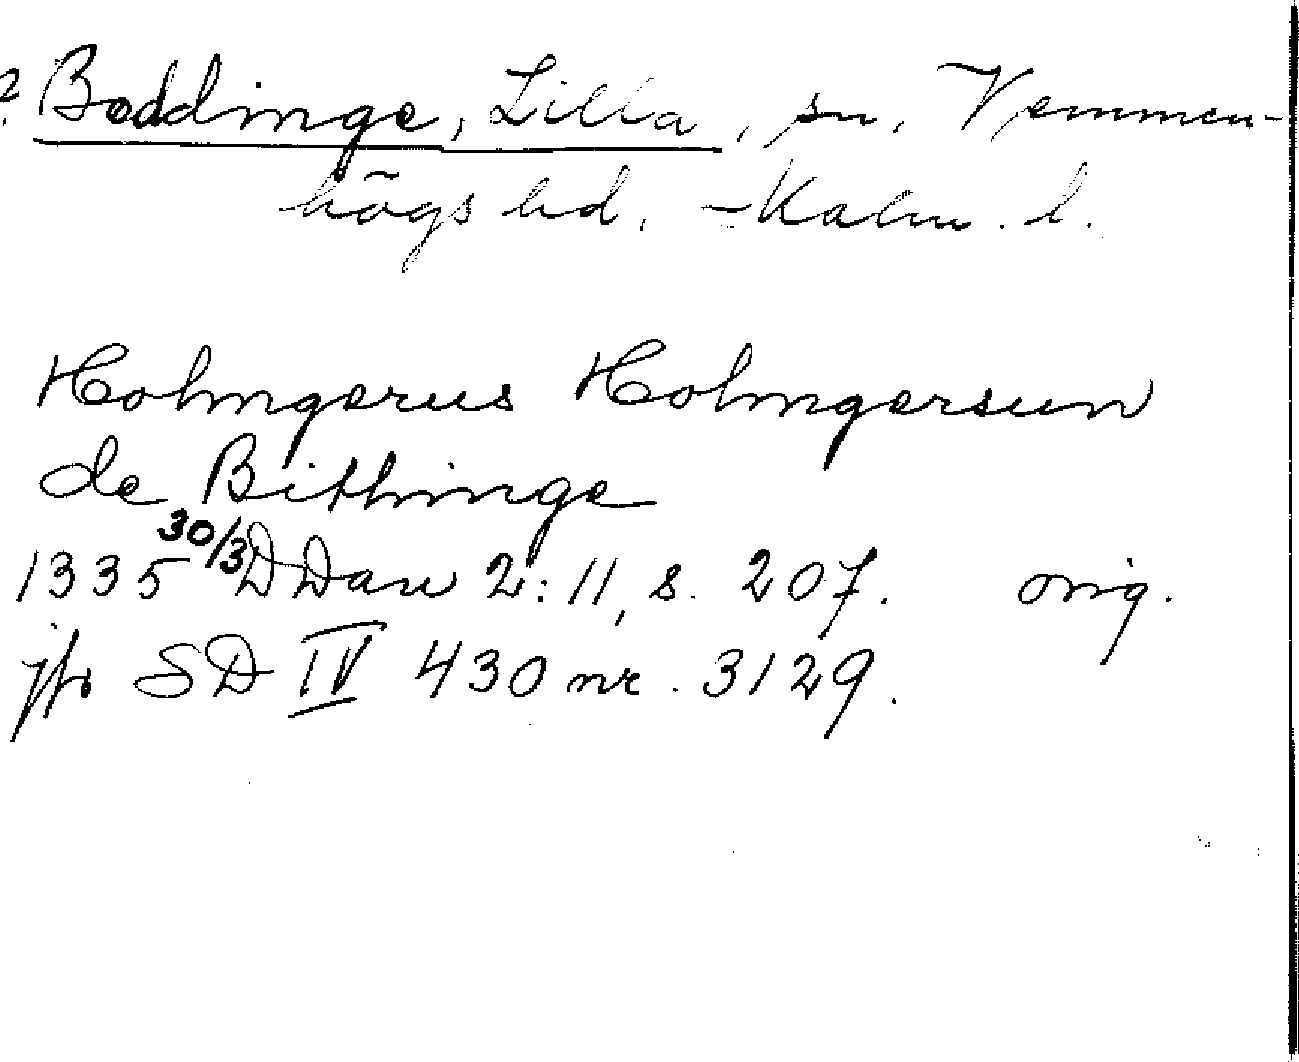 ? Beddinge, Lilla, sn, Vemmen-
högs hd, Malm. l.
Holmgerus Holmgersun
de Bithinge
1335 30/3 DDan 2:11, s. 207. orig.
jfr SD IV 430 nr. 3129.